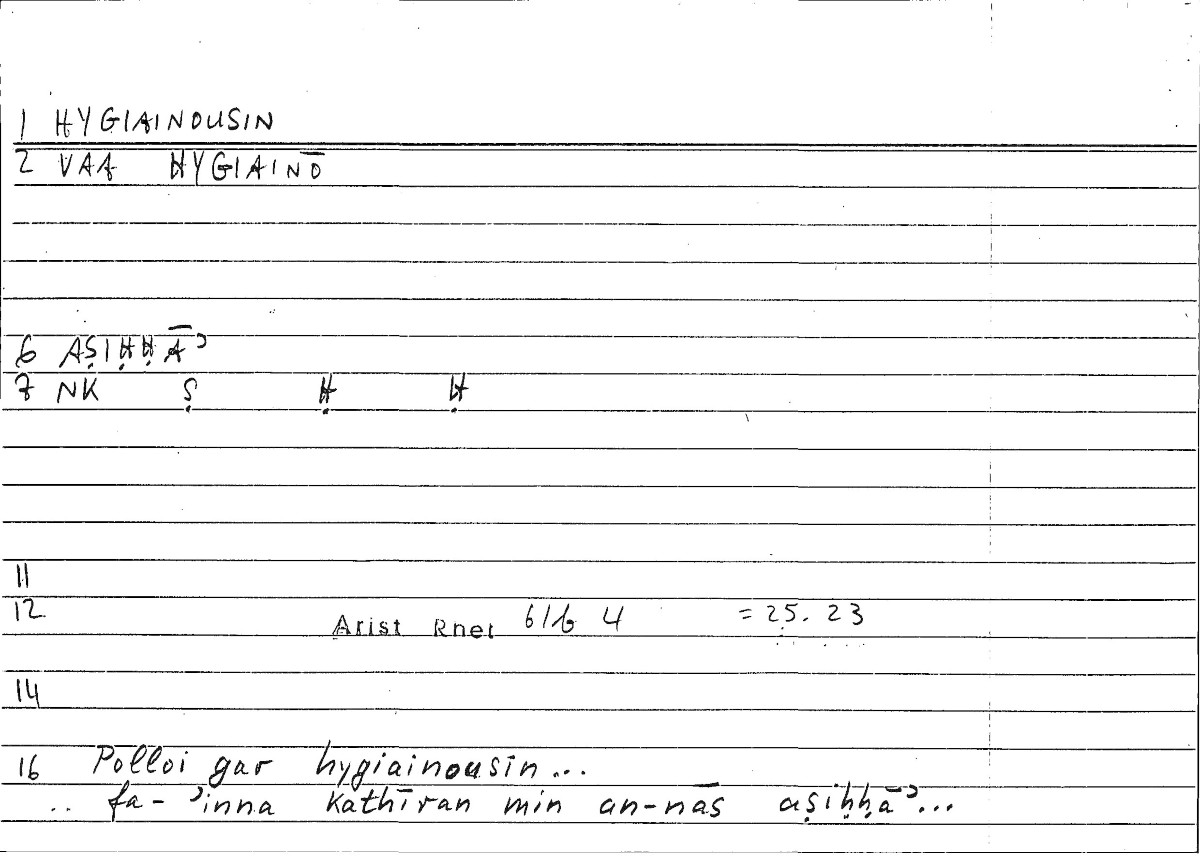 1 HYGIAINOUSIN
2 VAA HYGIAINŌ
6 AṢIḤḤĀʾ
7 NK Ṣ Ḥ Ḥ
11
12 Arist Rhet 61b 4 = 25. 23
14
16 Polloi gar hygiainousin...
.. fa-ʾinna kathīran min an-nās aṣiḥḥāʾ...